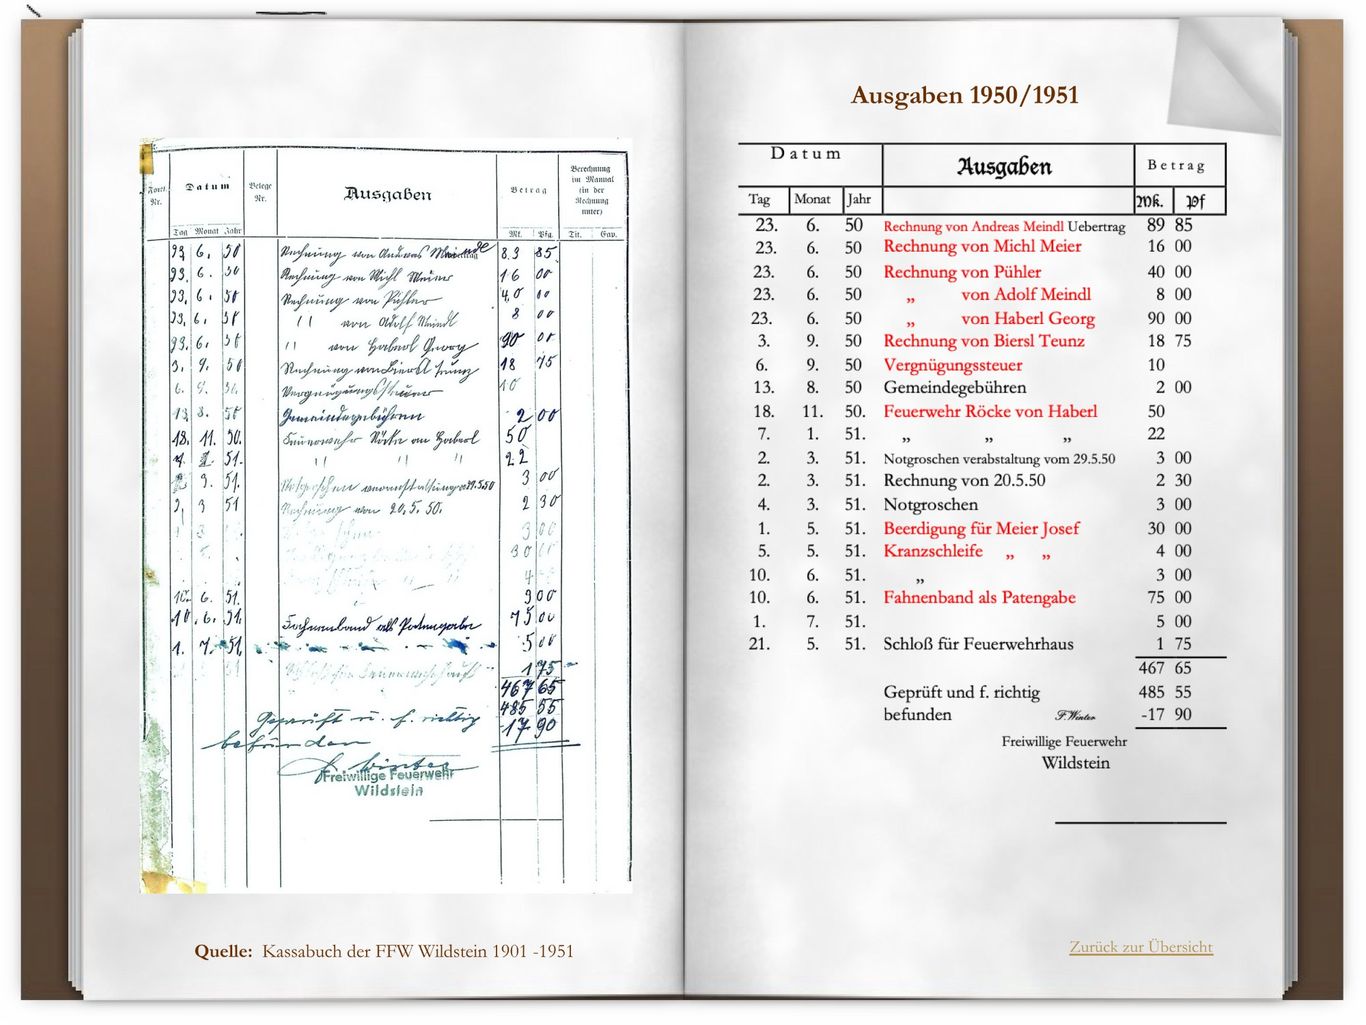 Fortl. Nr.
Datum
Belege Nr.
Ausgaben
Betrag
Berechnung im Manual (in der Rechnung unter)
Tag Monat Jahr Mk. Pfg. Tit.
23. 6. 50 Rechnung von Andreas Meindl 89 85
23. 6. 50 Rechnung von Michl Meier 16 00
23. 6. 50 Rechnung von Pühler 40 00
23. 6. 50 " von Adolf Meindl 8 00
23. 6. 50 " von Haberl Georg 90 00
3. 9. 50 Rechnung von Biersl Teunz 18 75
6. 9. 50 Vergnügungssteuer 10
13. 8. 50 Gemeindegebühren 2 00
18. 11. 50. Feuerwehr Röcke von Haberl 50
7. 1. 51. " " " 22
2. 3. 51. 3 00
2. 3 51 Rechnung von 20.5.50. 2 30
3 00
30 00
4
10. 6. 51. 3 00
10. 6. 51. Fahnenband als Patengabe 75 00
1. 7. 51. 5 00
1 75
467 65
485 55
Geprüft u. f. richtig -17 90
befunden
F. Winter
Freiwillige Feuerwehr
Wildstein
Quelle: Kassabuch der FFW Wildstein 1901 -1951
Ausgaben 1950/1951
Datum Ausgaben Betrag
Tag Monat Jahr Mk. Pf
23. 6. 50 Rechnung von Andreas Meindl Uebertrag 89 85
23. 6. 50 Rechnung von Michl Meier 16 00
23. 6. 50 Rechnung von Pühler 40 00
23. 6. 50 „ von Adolf Meindl 8 00
23. 6. 50 „ von Haberl Georg 90 00
3. 9. 50 Rechnung von Biersl Teunz 18 75
6. 9. 50 Vergnügungssteuer 10
13. 8. 50 Gemeindegebühren 2 00
18. 11. 50. Feuerwehr Röcke von Haberl 50
7. 1. 51. „ „ „ 22
2. 3. 51. Notgroschen verabstaltung vom 29.5.50 3 00
2. 3. 51. Rechnung von 20.5.50 2 30
4. 3. 51. Notgroschen 3 00
1. 5. 51. Beerdigung für Meier Josef 30 00
5. 5. 51. Kranzschleife „ „ 4 00
10. 6. 51. „ 3 00
10. 6. 51. Fahnenband als Patengabe 75 00
1. 7. 51. 5 00
21. 5. 51. Schloß für Feuerwehrhaus 1 75
467 65
Geprüft und f. richtig 485 55
befunden F.Winter -17 90
Freiwillige Feuerwehr
Wildstein
Zurück zur Übersicht